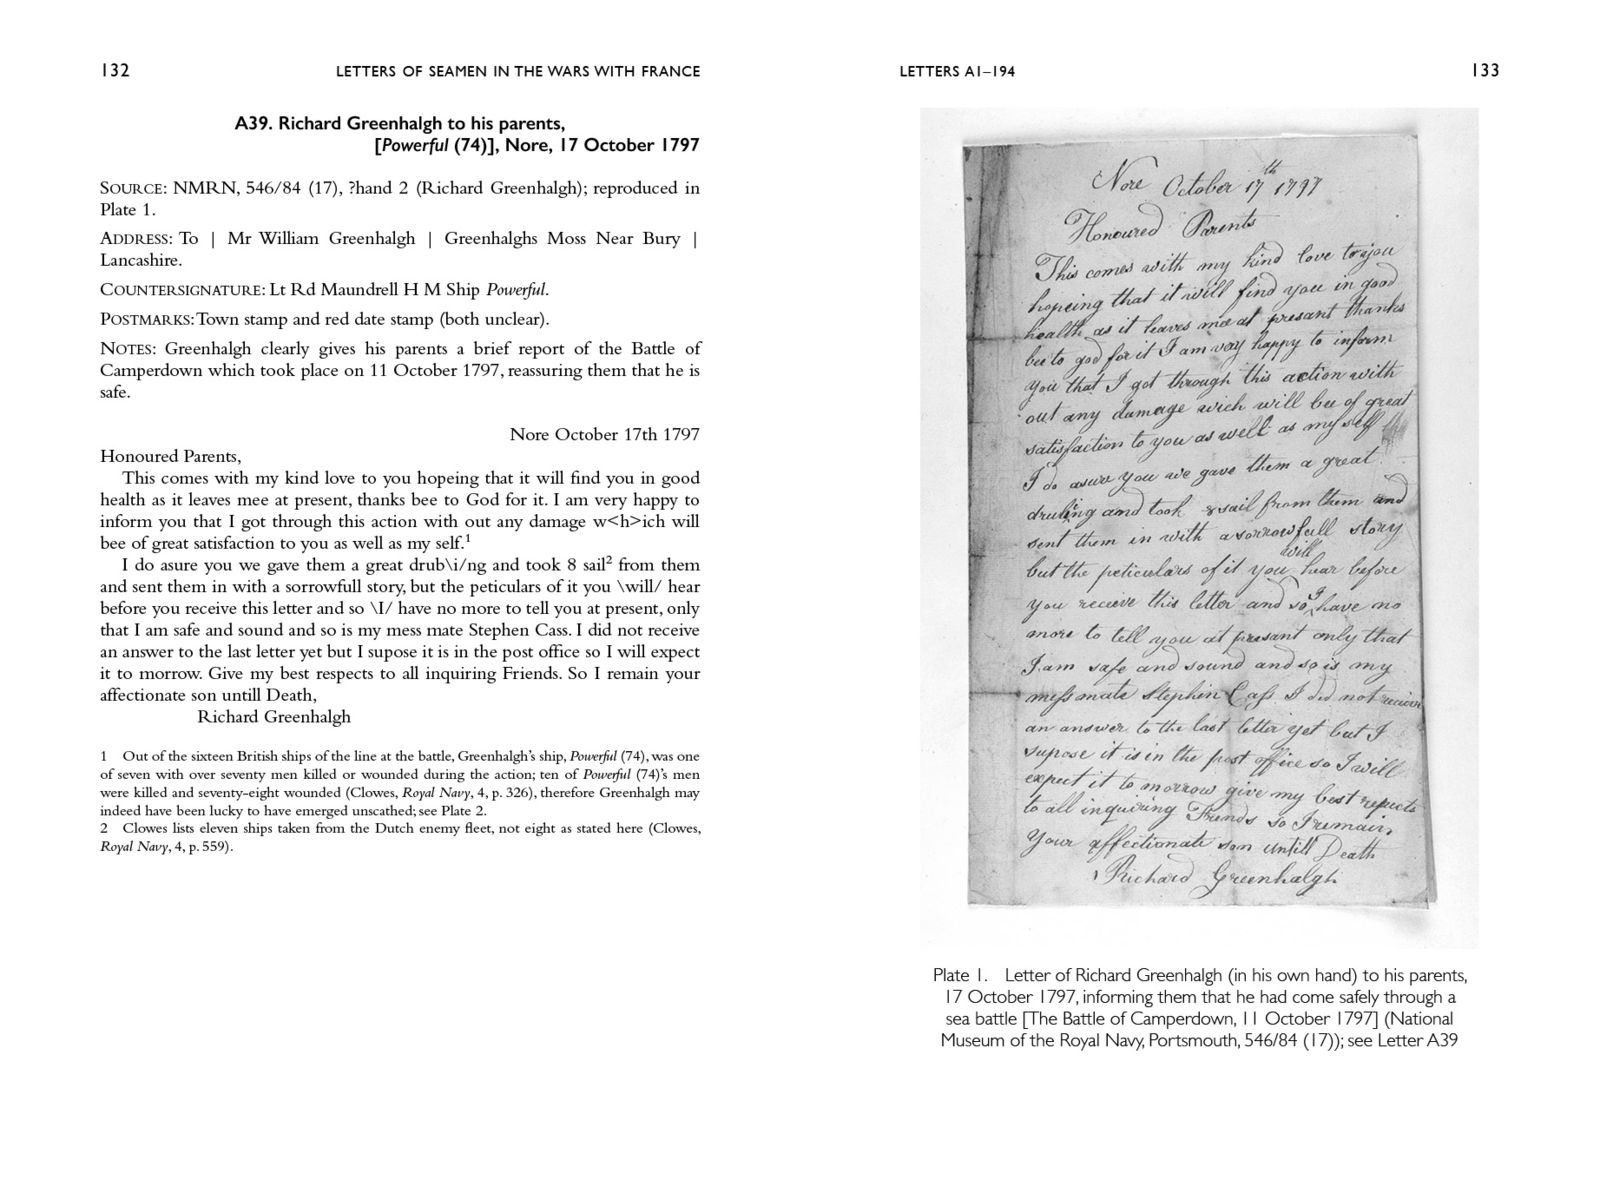 132
LETTERS OF SEAMEN IN THE WARS WITH FRANCE
A39. Richard Greenhalgh to his parents,
[Powerful (74)], Nore, 17 October 1797
SOURCE: NMRN, 546/84 (17), ?hand 2 (Richard Greenhalgh); reproduced in
Plate 1.
ADDRESS: To | Mr William Greenhalgh | Greenhalghs Moss Near Bury |
Lancashire.
COUNTERSIGNATURE: Lt Rd Maundrell H M Ship Powerful.
POSTMARKS: Town stamp and red date stamp (both unclear).
NOTES: Greenhalgh clearly gives his parents a brief report of the Battle of
Camperdown which took place on 11 October 1797, reassuring them that he is
safe.
Nore October 17th 1797
Honoured Parents,
This comes with my kind love to you hopeing that it will find you in good
health as it leaves mee at present, thanks bee to God for it. I am very happy to
inform you that I got through this action with out any damage w<h>ich will
bee of great satisfaction to you as well as my self.1
I do asure you we gave them a great drub\i/ng and took 8 sail2 from them
and sent them in with a sorrowfull story, but the peticulars of it you \will/ hear
before you receive this letter and so \I/ have no more to tell you at present, only
that I am safe and sound and so is my mess mate Stephen Cass. I did not receive
an answer to the last letter yet but I supose it is in the post office so I will expect
it to morrow. Give my best respects to all inquiring Friends. So I remain your
affectionate son untill Death,
Richard Greenhalgh
1 Out of the sixteen British ships of the line at the battle, Greenhalgh's ship, Powerful (74), was one
of seven with over seventy men killed or wounded during the action; ten of Powerful (74)'s men
were killed and seventy-eight wounded (Clowes, Royal Navy, 4, p. 326), therefore Greenhalgh may
indeed have been lucky to have emerged unscathed; see Plate 2.
2 Clowes lists eleven ships taken from the Dutch enemy fleet, not eight as stated here (Clowes,
Royal Navy, 4, p. 559).
LETTERS A1–194
133
Nore October 17th 1797
Honoured Parents
This comes with my kind love to you
hopeing that it will find you in good
health as it leaves mee at presant thanks
bee to god for it I am very happy to inform
you that I got through this action with
out any damage wich will bee of great
satisfaction to you as well as my self
I do asure you we gave them a great
drubing and took 8 sail from them and
sent them in with a sorrowfull story
but the peticulars of it you will hear before
you receive this letter and so I have no
more to tell you at presant only that
I am safe and sound and so is my
mess mate Stephin Cass I did not recieve
an answer to the last letter yet but I
supose it is in the post office so I will
expect it to morrow give my best respects
to all inquiring Friends so I remain
Your affectionate son untill Death
Richard Greenhalgh
Plate 1. Letter of Richard Greenhalgh (in his own hand) to his parents,
17 October 1797, informing them that he had come safely through a
sea battle [The Battle of Camperdown, 11 October 1797] (National
Museum of the Royal Navy, Portsmouth, 546/84 (17)); see Letter A39